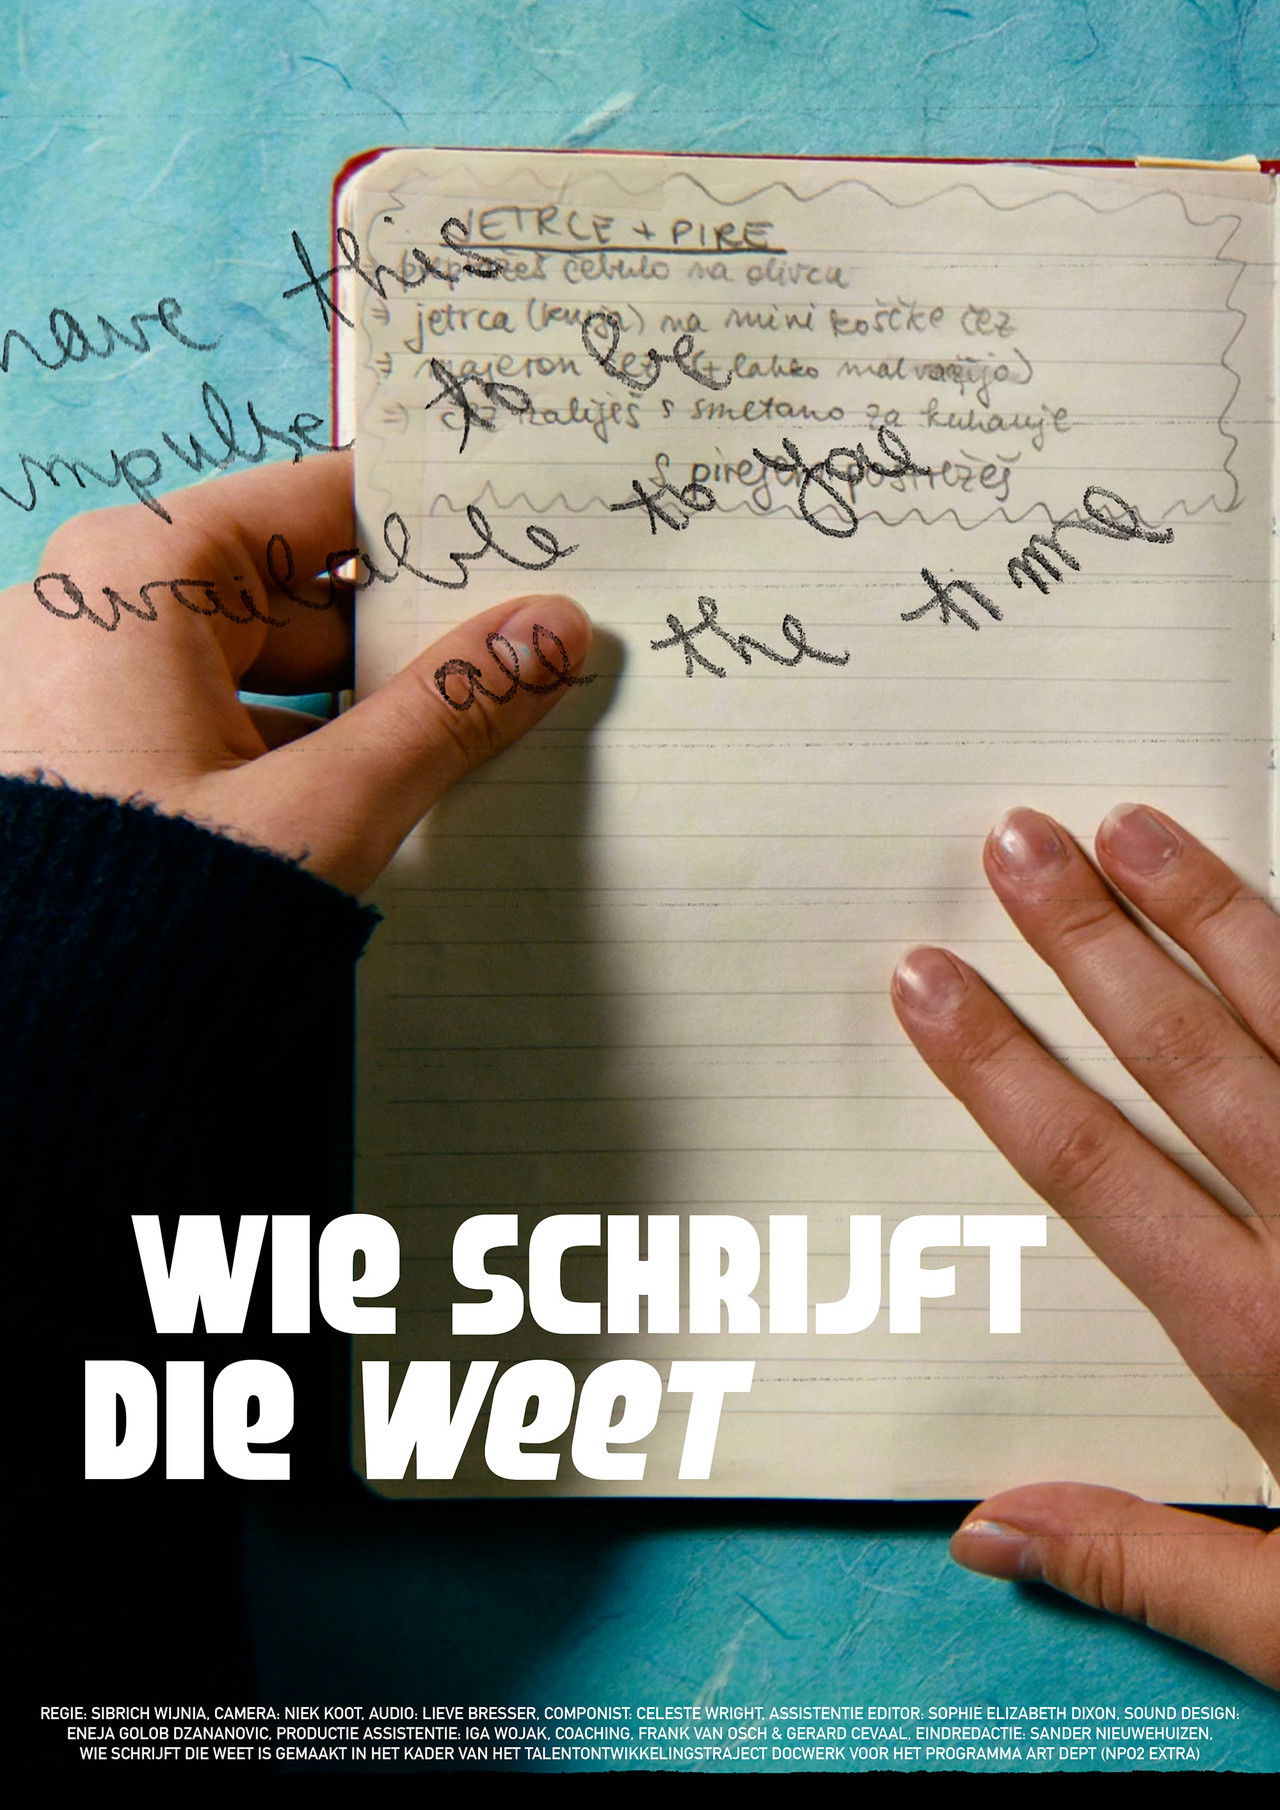 JETRCE + PIRE
prepražeš čebulo na olivcu
⇒ jetrca (kunja) na mini koščke čez
⇒ majeron čez (+ lahko malvazijo)
⇒ čez zaliješ s smetano za kuhanje
S pirejem postrežeš
have this
impulse to be
available to you
all the time
WIE SCHRIJFT
DIE WEET
REGIE: SIBRICH WIJNIA, CAMERA: NIEK KOOT, AUDIO: LIEVE BRESSER, COMPONIST: CELESTE WRIGHT, ASSISTENTIE EDITOR: SOPHIE ELIZABETH DIXON, SOUND DESIGN:
ENEJA GOLOB DZANANOVIC, PRODUCTIE ASSISTENTIE: IGA WOJAK, COACHING, FRANK VAN OSCH & GERARD CEVAAL, EINDREDACTIE: SANDER NIEUWEHUIZEN,
WIE SCHRIJFT DIE WEET IS GEMAAKT IN HET KADER VAN HET TALENTONTWIKKELINGSTRAJECT DOCWERK VOOR HET PROGRAMMA ART DEPT (NPO2 EXTRA)